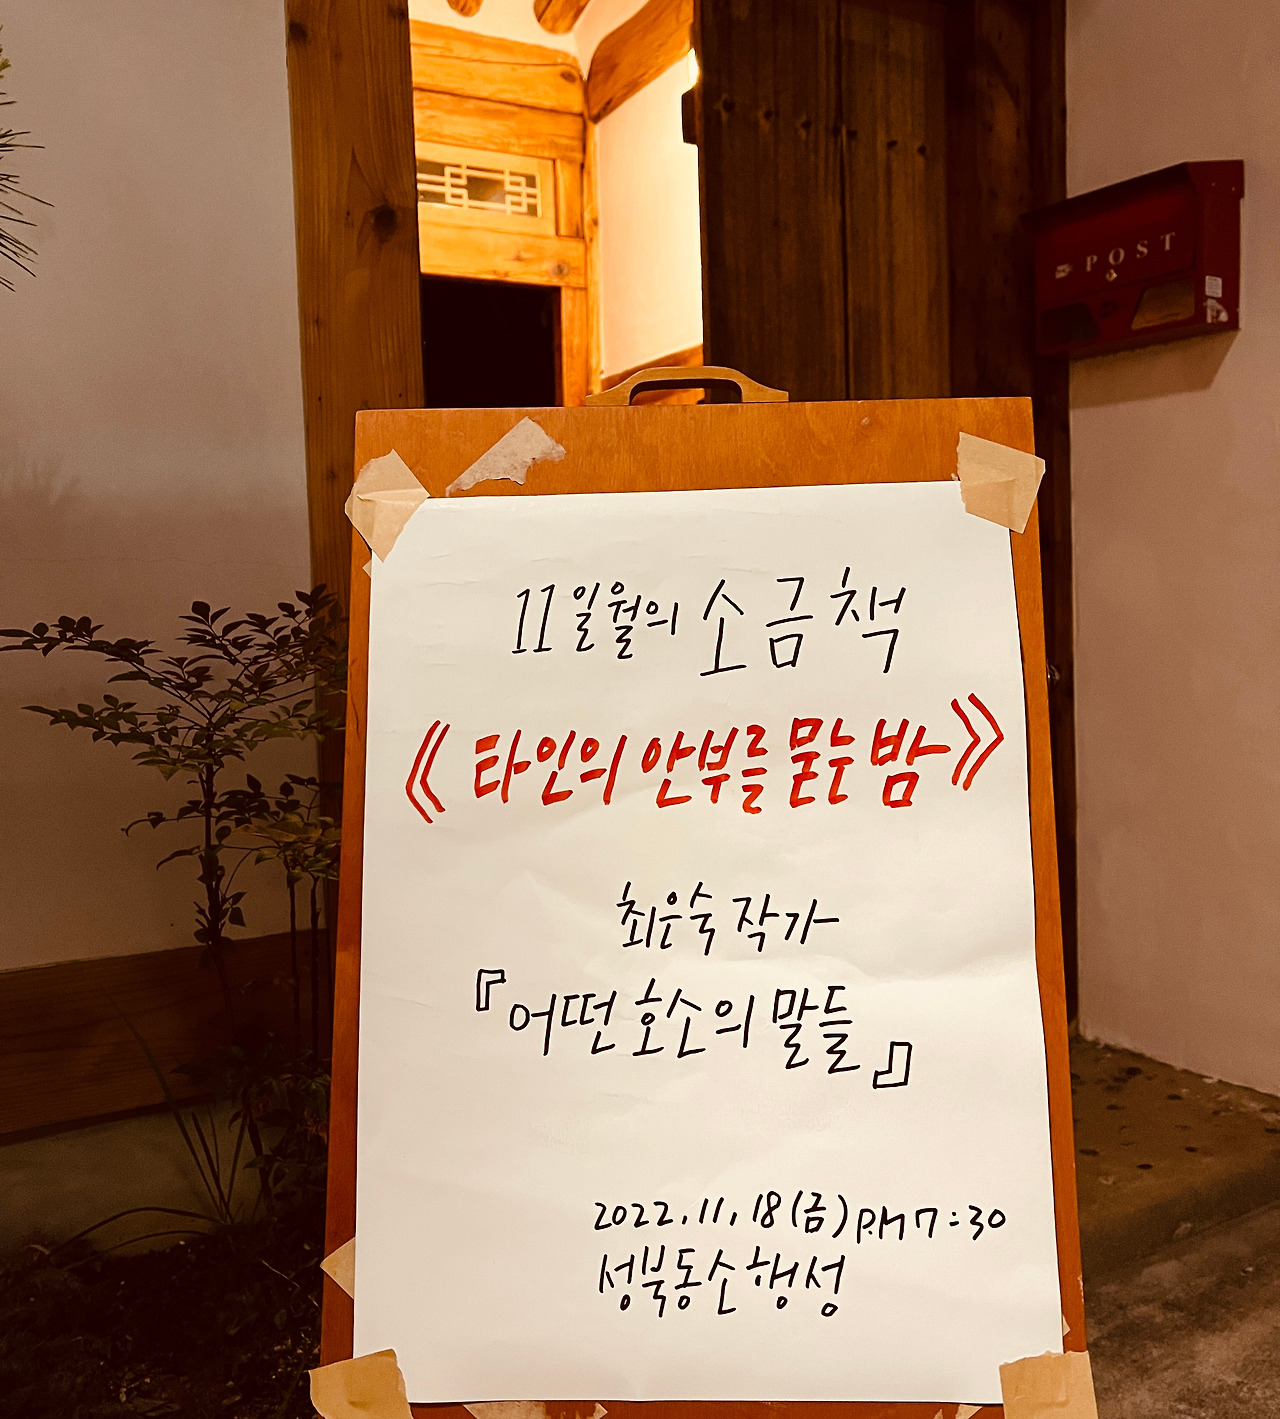 POST
11일월의 소금책
《타인의 안부를 묻는 밤》
최은숙 작가
『어떤 호소의 말들』
2022.11.18(금) P.M 7:30
성북동소행성